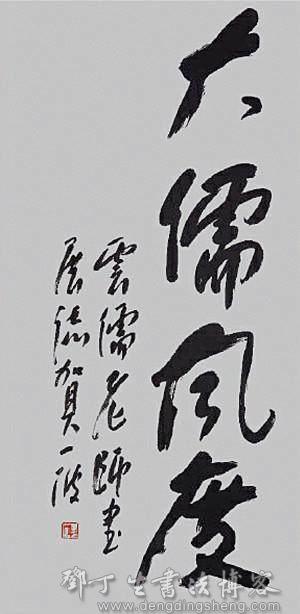 大儒风度
雲儒老师書
展志賀一波
鄧丁生書法博客
www.dengdingsheng.com